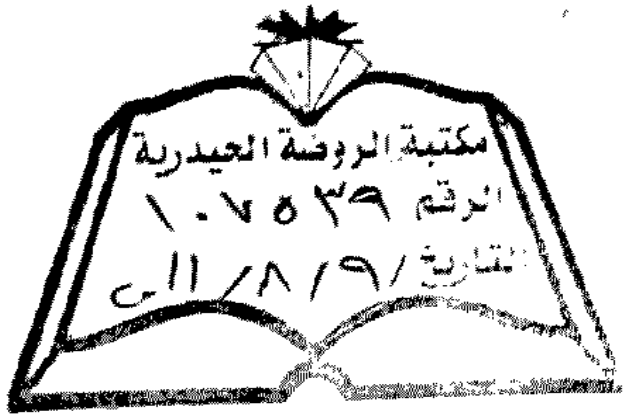 مكتبة الروضة الحيدرية
الرقم ١٠٧٥٣٩
التاريخ ٩/٨/١١